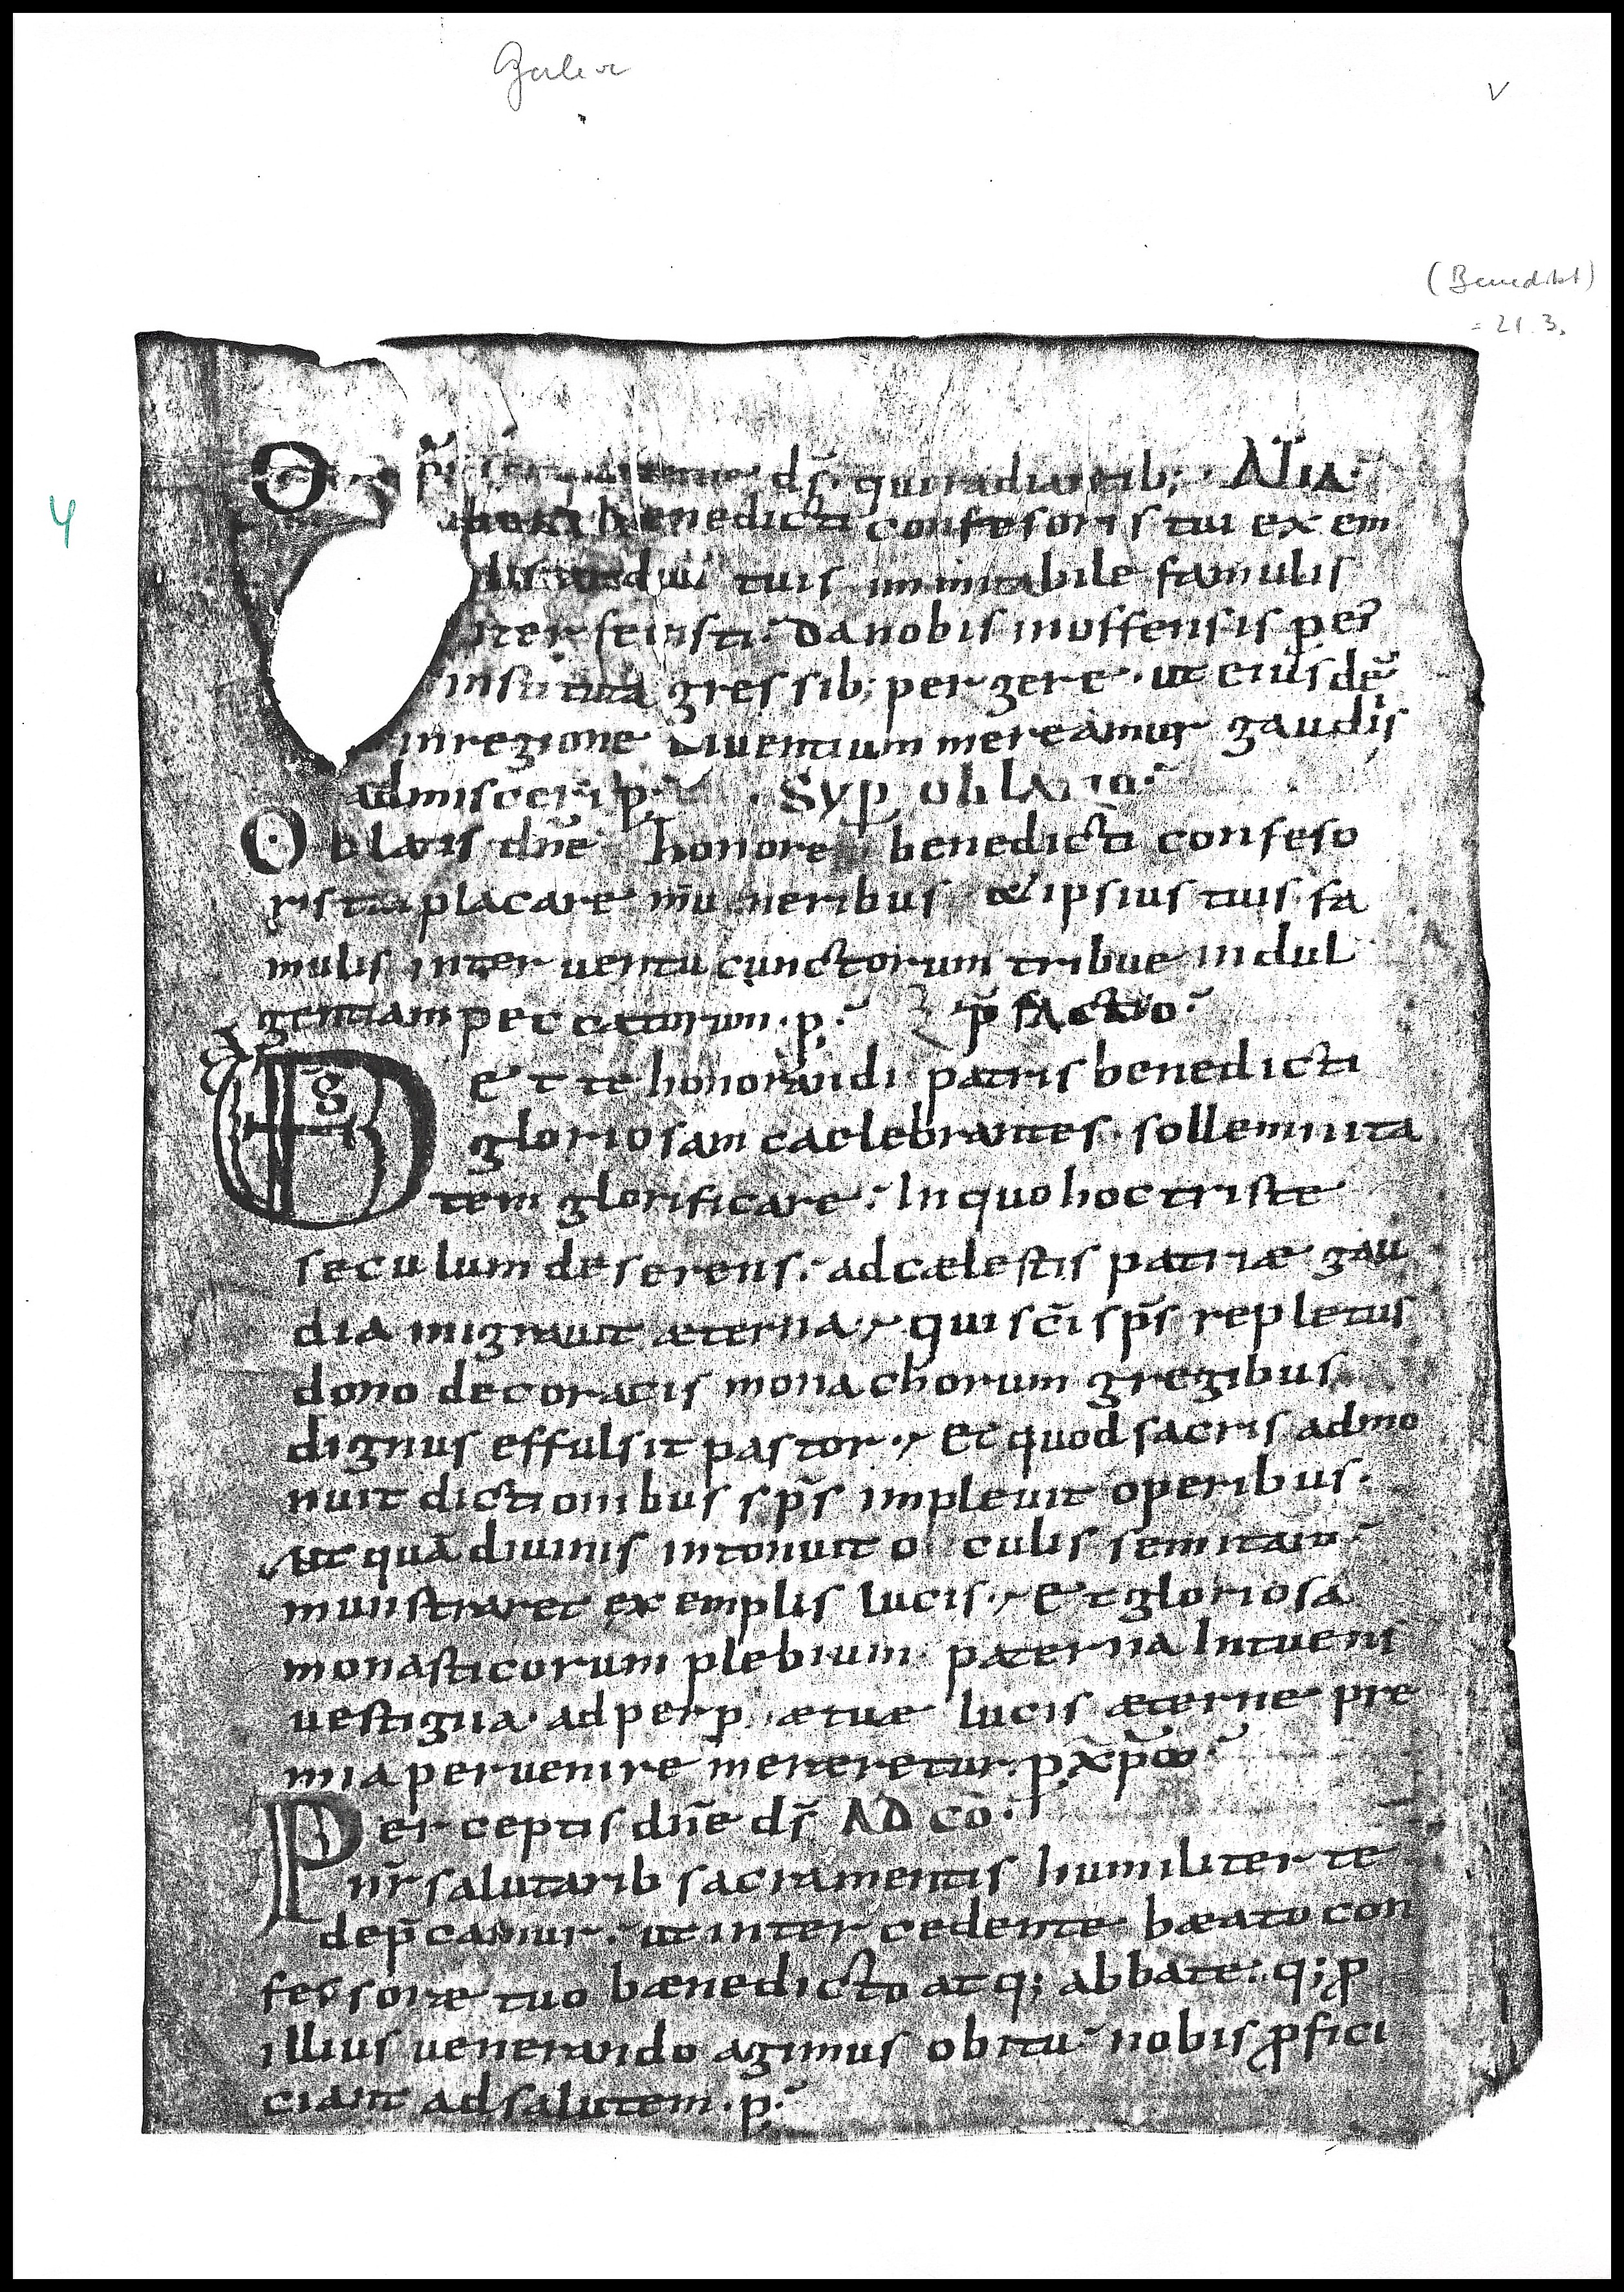 V
(Benedikt)
= 21.3.
4
O ds. qui radiantib; Alia
benedicti confesoris tui exem
tuis immitabile famulis
iter fecisti. Da nobis inoffensis per
instituta gressib; pergere. ut eiusdē
in regione viventium mereamur gaudiis
admisceri p. Syp oblatio
Oblatis dn̄e honore benedicti confeso
ris tui placare mu neribus & ipsius tuis fa
mulis inter ventu cunctorum tribue indul
gentiam peccatorum. p. p̄factio
Et te honorandi patris benedicti
gloriosam caelebrantes. sollemnita
tem glorificare. In quo hoc triste
seculum deserens. ad cælestis patriæ gau
dia migravit æterna. qui sc̄i sp̄s repletus
dono decoratis monachorum gregibus
dignus effulsit pastor. Et quod sacris admo
nuit dictionibus sp̄s implevit operibus.
Et quā divinis intonuit o culis semitam
munistraret exemplis lucis. Et gloriosa
monasticorum plebium paterna Intuens
vestigia. ad perp ætuæ lucis æterne pre
mia pervenire mereretur. p xp̄m
Per ceptis dn̄e ds̄ AD CO.
nr̄ salutarib sacramentis humiliter te
dep̄camur. ut inter cedente bæato con
fessoræ tuo bænedicto atq; abbate. q; ꝓ
illius venerando agimus obitu nobis ꝓfici
ciant ad salutem. p.